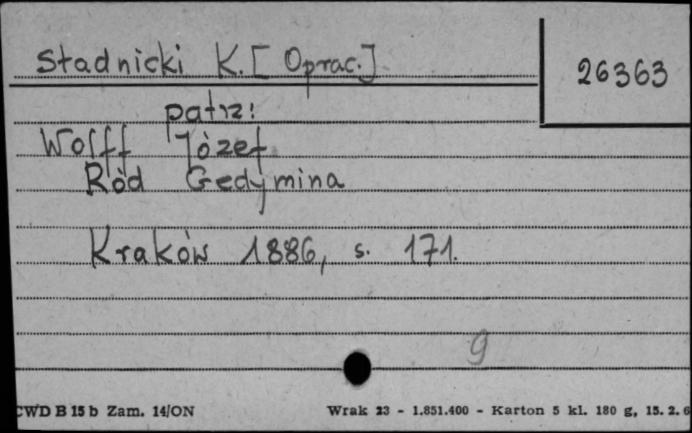 Stadnicki K. [Oprac.]
26363
patrz:
Wolff Józef
Ród Gedymina
Kraków 1886, s. 171.
9
CWD B 15 b Zam. 14/ON
Wrak 23 - 1.851.400 - Karton 5 kl. 180 g, 15. 2. 6